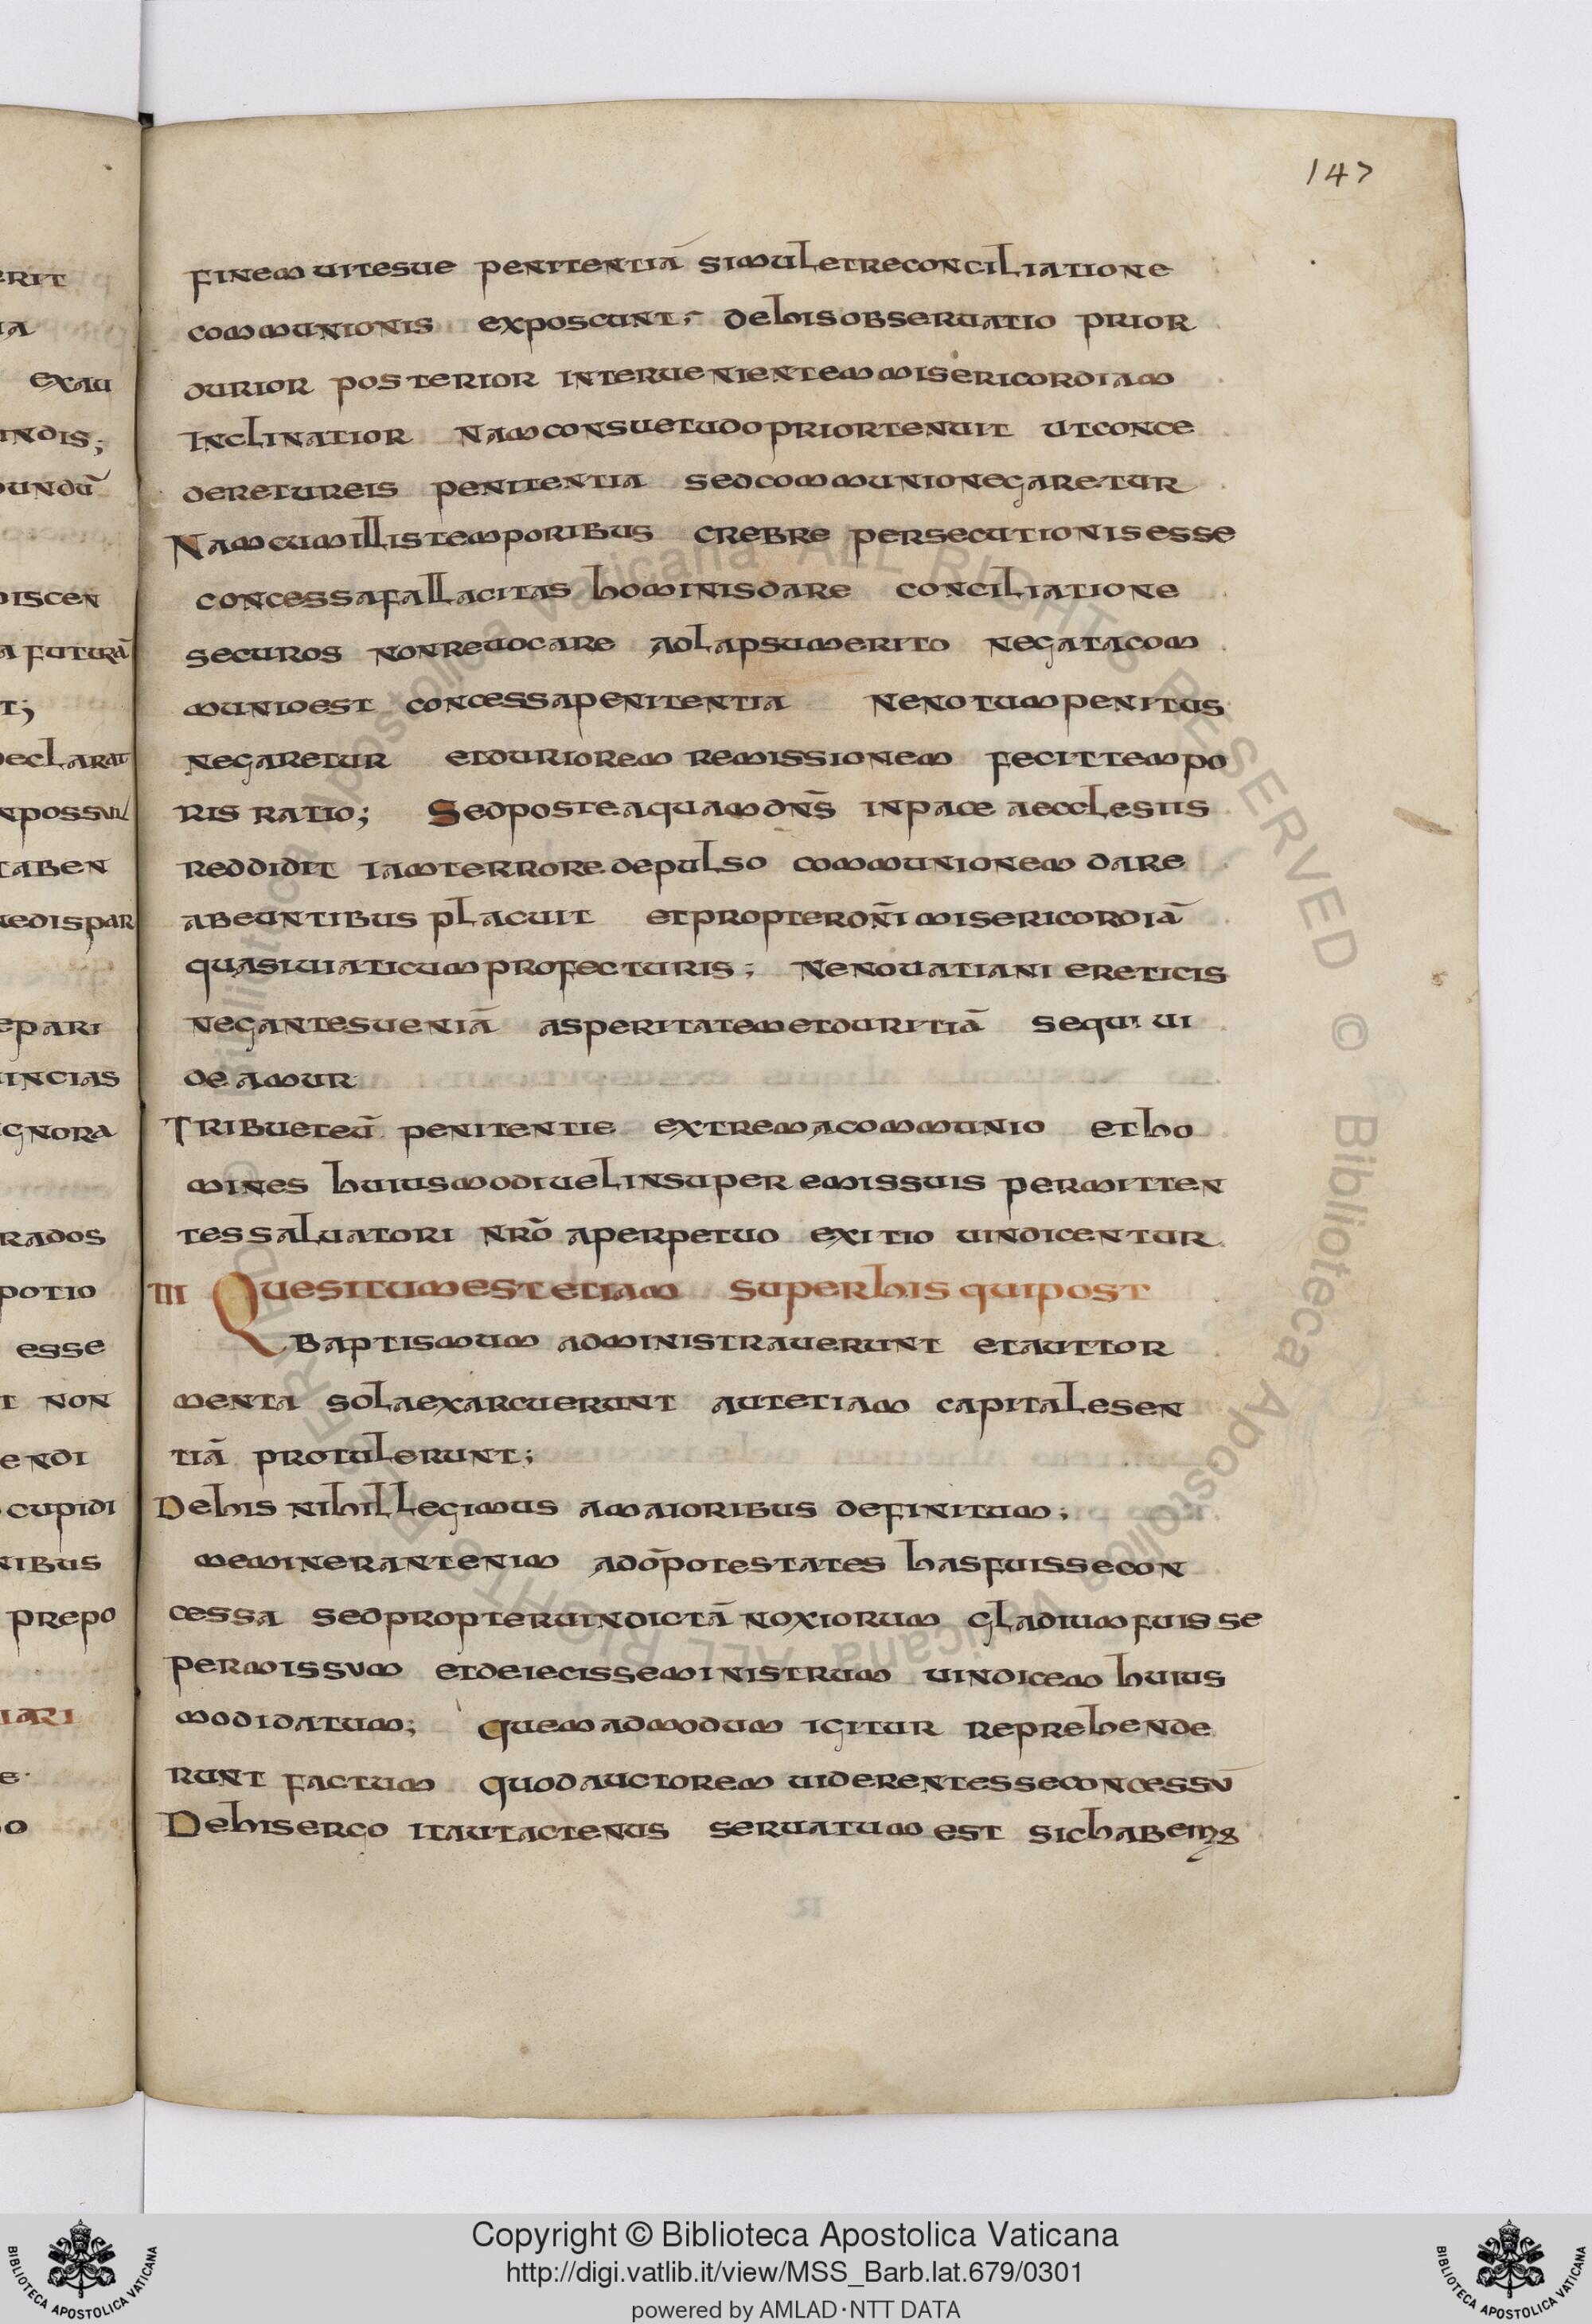 147
finem uitesue penitentiā simul et reconciliatione
communionis exposcunt; de his obseruatio prior
durior posterior interueniente misericordiam
inclinatior nam consuetudo prior tenuit ut conce
deretur eis penitentia sed communio negaretur
Nam cum illis temporibus crebre persecutionis esse
concessa fallacitas hominis dare conciliatione
securos non reuocare ad lapsum merito negata com
munio est concessa penitentia ne notum penitus
negaretur et duriorem remissionem fecit tempo
ris ratio; Sed posteaquam dn̄s in pace aecclesiis
reddidit iam terrore depulso communionem dare
abeuntibus placuit et propter dn̄i misericordiā
quasi uiaticum profecturis; ne nouatiani ereticis
negantes ueniā asperitatem et duritiā sequi ui
deamur
Tribuet eū penitentie extrema communio et ho
mines huiusmodi uel in super emissuis permitten
tes saluatori nrō a perpetuo exitio uindicentur
III Quesitum est etiam super his qui post
baptismum administrauerunt et aut tor
menta sola exarcuerunt aut etiam capitale sen
tiā protulerunt;
De his nihil legimus a maioribus definitum;
meminerant enim a dō potestates has fuisse con
cessa sed propter uindictā noxiorum gladium fuisse
permissum et deiecisse ministrum uindicem huius
modi datum; quem ad modum igitur reprehende
runt factum quod auctorem uiderent esse concessū
De his erco ita ut actenus seruatum est sic habemus
rit
ia
exau
indis;
undū
discen
a futurā
t;
declarat
taben
uedispar
epari
incias
ignora
rados
potio
esse
t non
endi
cupidi
nibus
prepo
iari
e
o
© Biblioteca Apostolica Vaticana ALL RIGHTS RESERVED © Biblioteca Apostolica Vaticana ALL RIGHTS RESERVED
Copyright © Biblioteca Apostolica Vaticana
http://digi.vatlib.it/view/MSS_Barb.lat.679/0301
powered by AMLAD·NTT DATA
BIBLIOTECA APOSTOLICA VATICANA
BIBLIOTECA APOSTOLICA VATICANA